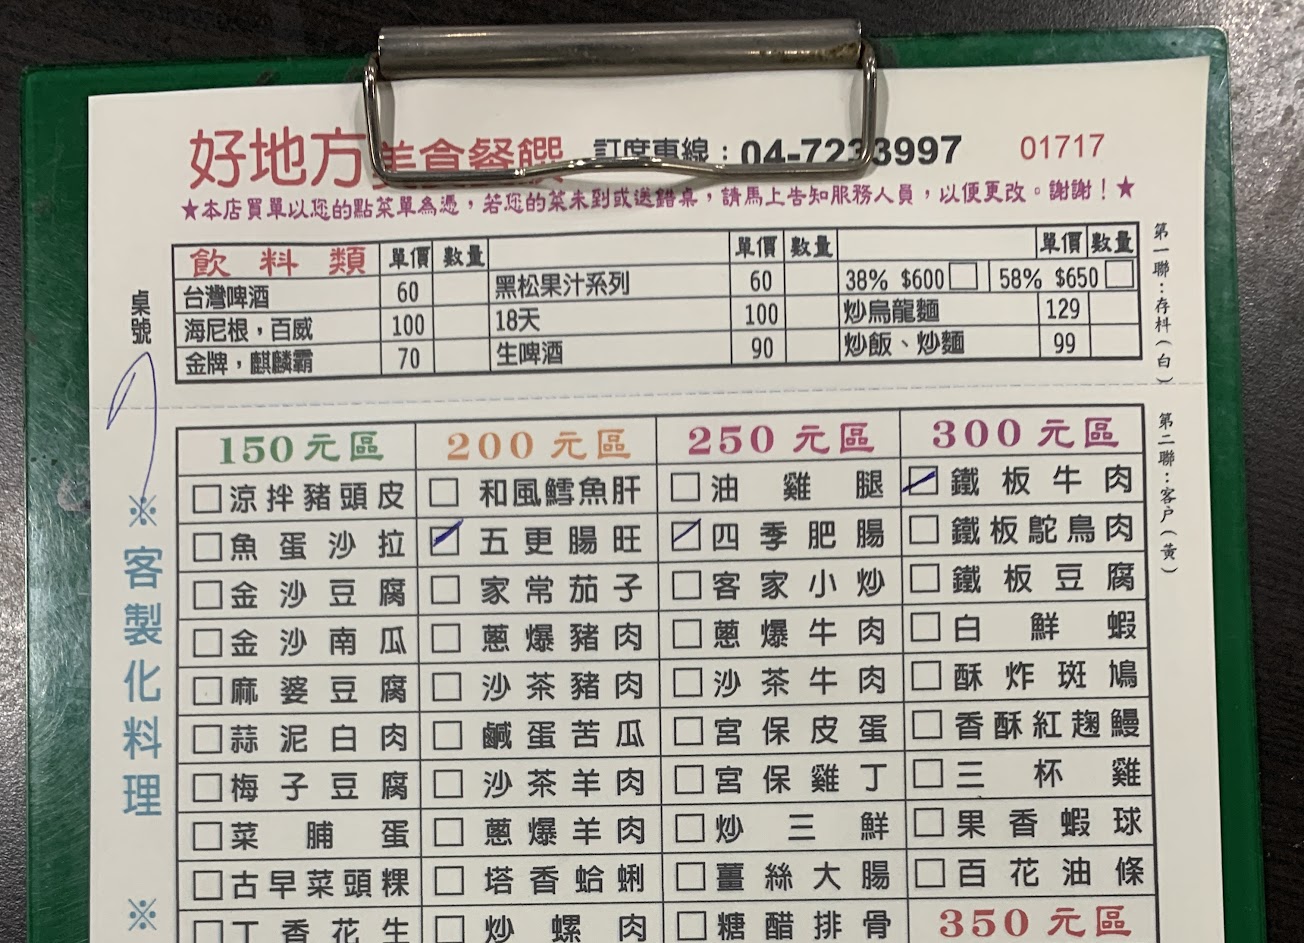 好地方美食餐饌 訂席專線：04-7233997 01717
★本店買單以您的點菜單為憑，若您的菜未到或送錯桌，請馬上告知服務人員，以便更改。謝謝！★
飲料類 單價 數量 單價 數量 單價 數量
台灣啤酒 60 黑松果汁系列 60 38% $600 58% $650
海尼根，百威 100 18天 100 炒烏龍麵 129
金牌，麒麟霸 70 生啤酒 90 炒飯、炒麵 99
桌號
第一聯：存根（白）
第二聯：客戶（黃）
※客製化料理 ※
150元區 200元區 250元區 300元區
涼拌豬頭皮 和風鱈魚肝 油雞腿 鐵板牛肉
魚蛋沙拉 五更腸旺 四季肥腸 鐵板鴕鳥肉
金沙豆腐 家常茄子 客家小炒 鐵板豆腐
金沙南瓜 蔥爆豬肉 蔥爆牛肉 白鮮蝦
麻婆豆腐 沙茶豬肉 沙茶牛肉 酥炸斑鳩
蒜泥白肉 鹹蛋苦瓜 宮保皮蛋 香酥紅麴鰻
梅子豆腐 沙茶羊肉 宮保雞丁 三杯雞
菜脯蛋 蔥爆羊肉 炒三鮮 果香蝦球
古早菜頭粿 塔香蛤蜊 薑絲大腸 百花油條
丁香花生 炒螺肉 糖醋排骨 350元區